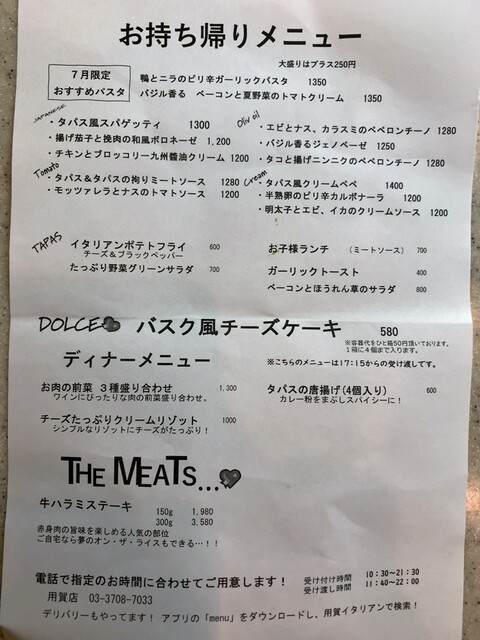 お持ち帰りメニュー
大盛りはプラス250円
7月限定
おすすめパスタ
鴨とニラのピリ辛ガーリックパスタ 1350
バジル香る ベーコンと夏野菜のトマトクリーム 1350
JAPANESE
・タパス風スパゲッティ 1300
・揚げ茄子と挽肉の和風ボロネーゼ 1,200
・チキンとブロッコリー九州醬油クリーム 1200
Olive oil
・エビとナス、カラスミのペペロンチーノ 1280
・バジル香るジェノベーゼ 1250
・タコと揚げニンニクのペペロンチーノ 1280
Tomato
・タパス&タパスの拘りミートソース 1280
・モッツァレラとナスのトマトソース 1200
Cream
・タパス風クリームペペ 1400
・半熟卵のピリ辛カルボナーラ 1200
・明太子とエビ、イカのクリームソース 1200
TAPAS
イタリアンポテトフライ 600
チーズ&ブラックペッパー
たっぷり野菜グリーンサラダ 700
お子様ランチ (ミートソース) 700
ガーリックトースト 400
ベーコンとほうれん草のサラダ 800
DOLCE バスク風チーズケーキ 580
※容器代をひと箱50円頂いております。
1箱に4個まで入ります。
ディナーメニュー
※こちらのメニューは17:15からの受け渡しです。
お肉の前菜 3種盛り合わせ 1,300
ワインにぴったりな肉の前菜盛り合わせ。
タパスの唐揚げ(4個入り) 600
カレー粉をまぶしスパイシーに!
チーズたっぷりクリームリゾット 1000
シンプルなリゾットにチーズがたっぷり!
THE MEATS...
牛ハラミステーキ
150g 1,980
300g 3,580
赤身肉の旨味を楽しめる人気の部位
ご自宅なら夢のオン・ザ・ライスもできる…!!
電話で指定のお時間に合わせてご用意します!
受け付け時間 10:30~21:30
受け渡し時間 11:40~22:00
用賀店 03-3708-7033
デリバリーもやってます! アプリの「menu」をダウンロードし、用賀イタリアンで検索!